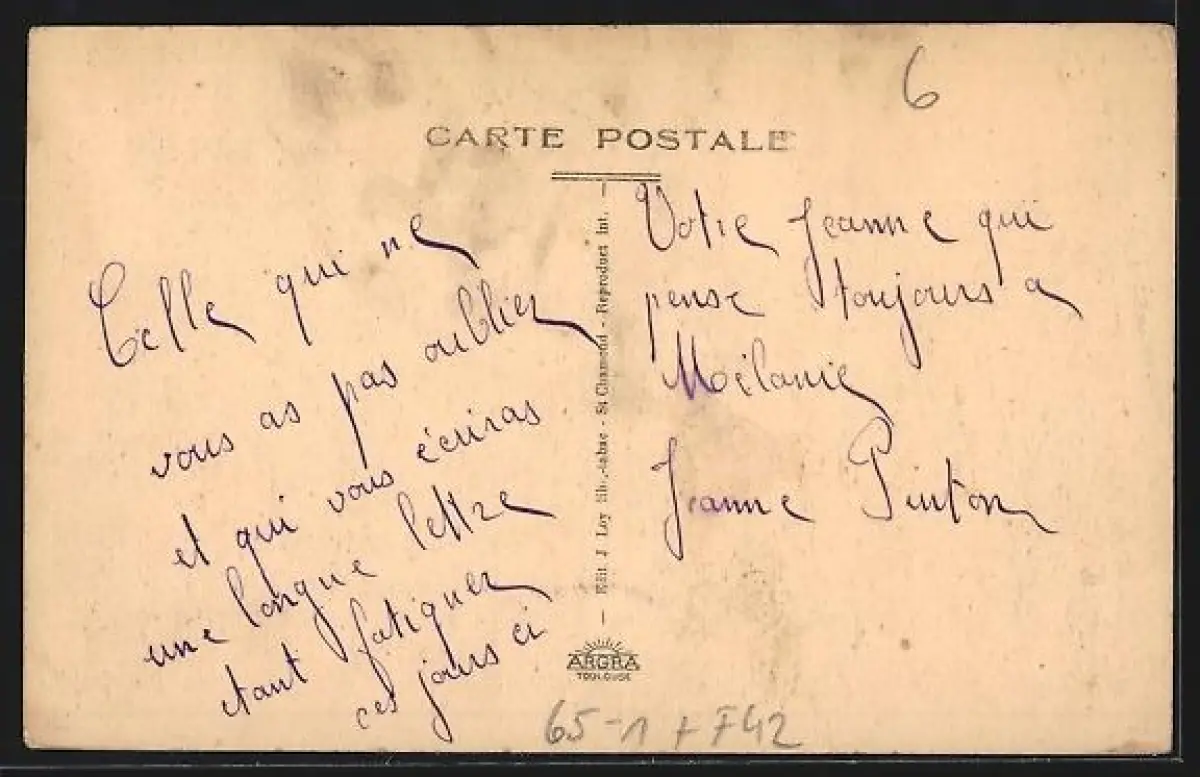 6
CARTE POSTALE
Celle qui ne
vous as pas oublier
et qui vous écriras
une longue lettre
etant fatiguer
ces jours ci
Votre Jeanne qui
pense toujours a
Mélanie
Jeanne Pinton
Edit. J Loy - St Chamond - Reproduct Int.
ARGRA
TOULOUSE
65-1 + F42